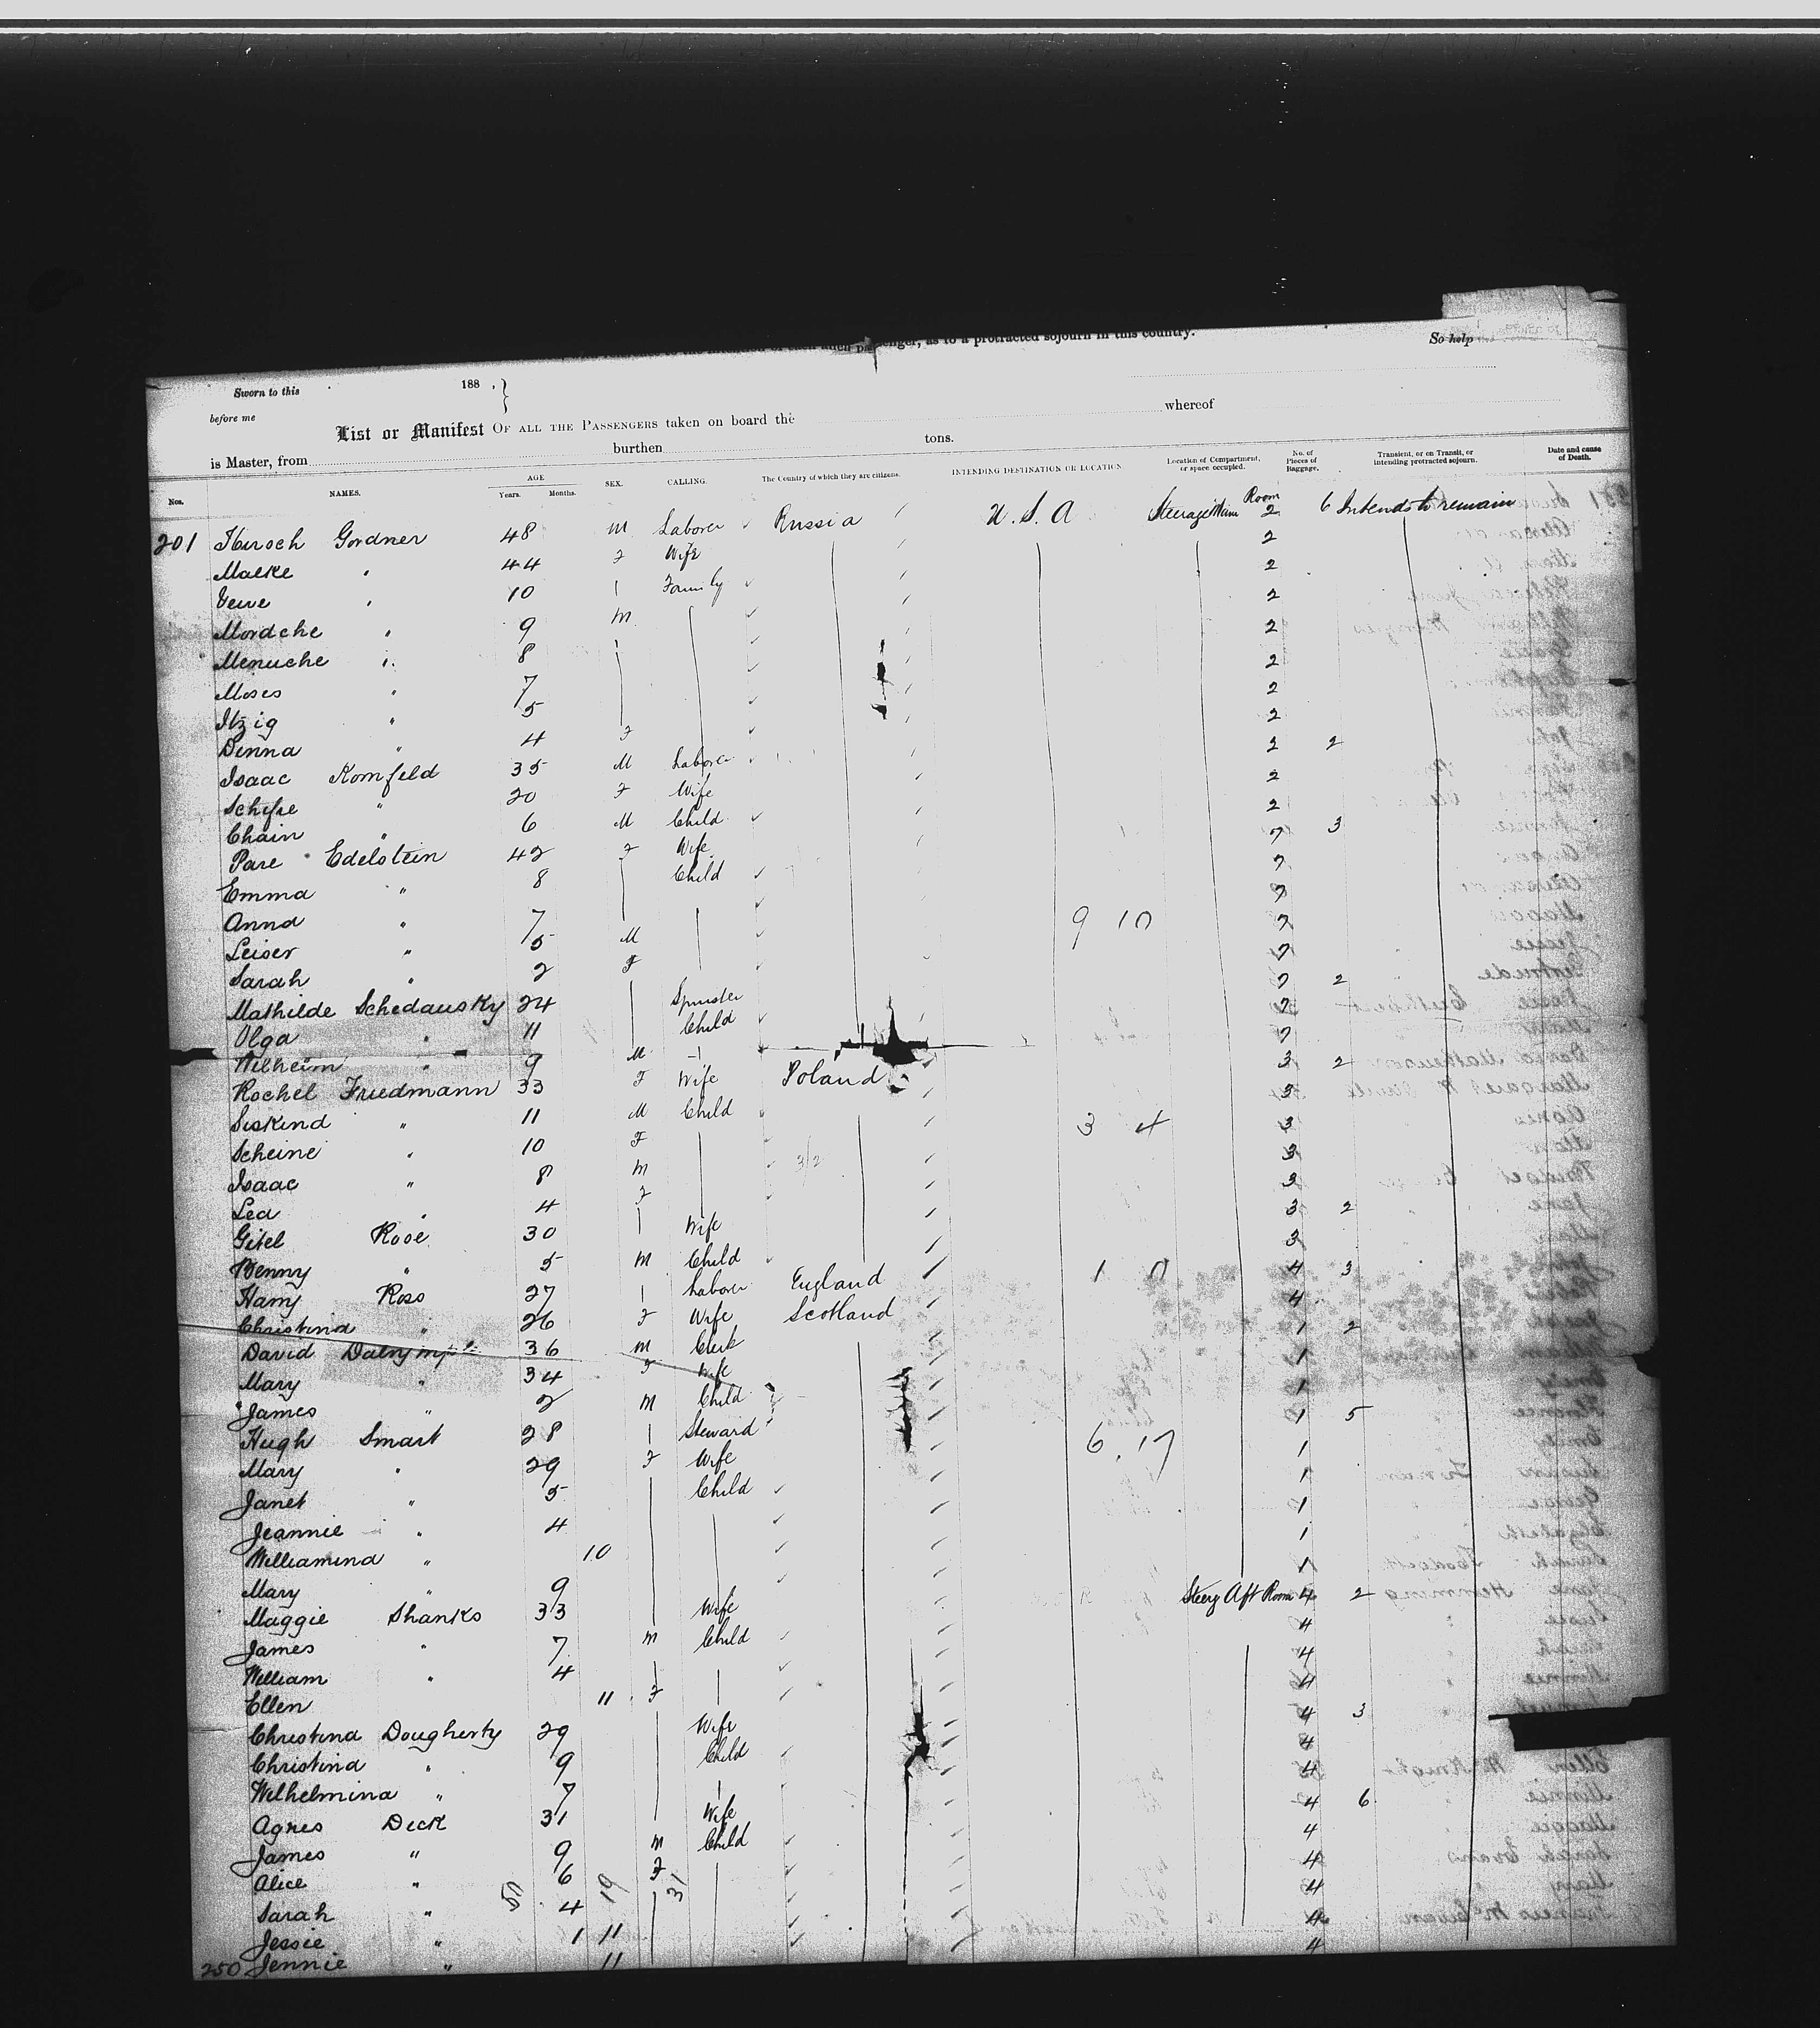 passenger, as to a protracted sojourn in this country.
So help
Sworn to this 188 , }
before me
List or Manifest OF ALL THE PASSENGERS taken on board the whereof
is Master, from burthen tons.
Nos. NAMES. AGE Years. Months. SEX. CALLING. The Country of which they are citizens. INTENDING DESTINATION OR LOCATION Location of Compartment, or space occupied. No. of Pieces of Baggage. Transient, or on Transit, or intending protracted sojourn. Date and cause of Death.
201 Hirsch Gordner 48 M Laborer Russia U.S.A Steerage Main Room 2 6 Intends to remain
Malke " 44 F Wife 2
10 Family 2
Mordche " 9 M 2
Menuche " 8 2
Moses " 7 2
Itzig " 5 2
Dinna " 4 F 2
Isaac Kornfeld 35 M Laborer 2 2
Schifre " 20 F Wife 2
Chain " 6 M Child 2
Pare Edelstein 42 F Wife 7 3
Emma " 8 Child 7
Anna " 7 7
Leiser " 5 M 9 10 7
Sarah " 2 F 7
Mathilde Schedausky 24 Spinster 7 2
Olga " 11 Child 7
Wilheim " 9 M 7
Rochel Friedmann 33 F Wife Poland 3 2
Siskind " 11 M Child 3
Scheine " 10 F 3 4 3
Isaac " 8 M 3
Lea " 4 F 3
Gitel Rose 30 Wife 3 2
Benny " 5 M Child 3
Harry Ross 27 Laborer England 4 3
Christina " 26 F Wife Scotland 4
David Dalrymple 36 M Clerk 1 2
Mary " 34 F Wife 1
James " 2 M Child 1
Hugh Smart 28 Steward 1 5
Mary " 29 F Wife 6 17 1
Janet " 5 Child 1
Jeannie " 4 1
Williamina " 10 1
Mary " 9 1
Maggie Shanks 33 Wife Steerg Aft Room 4 2
James " 7 M Child 4
William " 4 4
Ellen 11 F 4
Christina Dougherty 29 Wife 4 3
Christina " 9 Child 4
Wilhelmina " 7 4
Agnes Dick 31 Wife 4 6
James " 9 M Child 4
Alice " 6 F 4
Sarah " 4 4
Jessie " 1 11 4
250 Jennie " 11 4